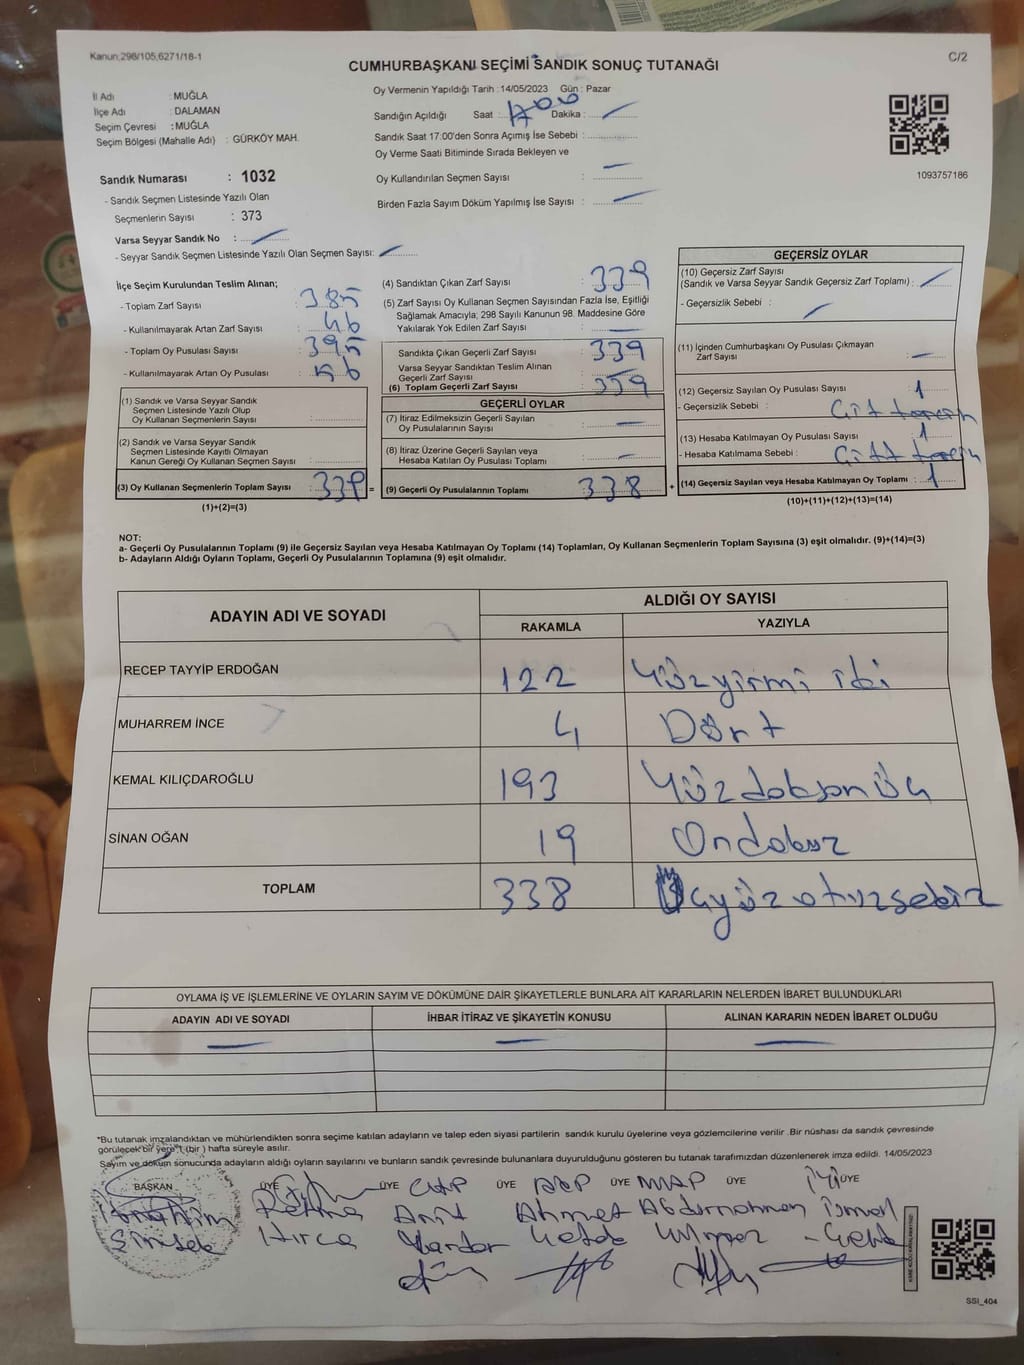 Kanun;298/105,6271/18-1
C/2
CUMHURBAŞKANI SEÇİMİ SANDIK SONUÇ TUTANAĞI
İl Adı : MUĞLA
İlçe Adı : DALAMAN
Seçim Çevresi : MUĞLA
Seçim Bölgesi (Mahalle Adı) : GÜRKÖY MAH.
Sandık Numarası : 1032
- Sandık Seçmen Listesinde Yazılı Olan
Seçmenlerin Sayısı : 373
Varsa Seyyar Sandık No :
- Seyyar Sandık Seçmen Listesinde Yazılı Olan Seçmen Sayısı:
Oy Vermenin Yapıldığı Tarih : 14/05/2023 Gün : Pazar
Sandığın Açıldığı Saat : Dakika :
Sandık Saat 17:00'den Sonra Açımış İse Sebebi :
Oy Verme Saati Bitiminde Sırada Bekleyen ve
Oy Kullandırılan Seçmen Sayısı :
Birden Fazla Sayım Döküm Yapılmış İse Sayısı :
1093757186
İlçe Seçim Kurulundan Teslim Alınan;
- Toplam Zarf Sayısı : 385
- Kullanılmayarak Artan Zarf Sayısı : 46
- Toplam Oy Pusulası Sayısı : 395
- Kullanılmayarak Artan Oy Pusulası : 56
(1) Sandık ve Varsa Seyyar Sandık
Seçmen Listesinde Yazılı Olup
Oy Kullanan Seçmenlerin Sayısı :
(2) Sandık ve Varsa Seyyar Sandık
Seçmen Listesinde Kayıtlı Olmayan
Kanun Gereği Oy Kullanan Seçmen Sayısı :
(3) Oy Kullanan Seçmenlerin Toplam Sayısı : 339 =
(1)+(2)=(3)
(4) Sandıktan Çıkan Zarf Sayısı : 339
(5) Zarf Sayısı Oy Kullanan Seçmen Sayısından Fazla İse, Eşitliği
Sağlamak Amacıyla; 298 Sayılı Kanunun 98. Maddesine Göre
Yakılarak Yok Edilen Zarf Sayısı :
Sandıkta Çıkan Geçerli Zarf Sayısı : 339
Varsa Seyyar Sandıktan Teslim Alınan
Geçerli Zarf Sayısı :
(6) Toplam Geçerli Zarf Sayısı : 339
GEÇERLİ OYLAR
(7) İtiraz Edilmeksizin Geçerli Sayılan
Oy Pusulalarının Sayısı :
(8) İtiraz Üzerine Geçerli Sayılan veya
Hesaba Katılan Oy Pusulası Toplamı :
(9) Geçerli Oy Pusulalarının Toplamı : 338 +
GEÇERSİZ OYLAR
(10) Geçersiz Zarf Sayısı
(Sandık ve Varsa Seyyar Sandık Geçersiz Zarf Toplamı) :
- Geçersizlik Sebebi :
(11) İçinden Cumhurbaşkanı Oy Pusulası Çıkmayan
Zarf Sayısı :
(12) Geçersiz Sayılan Oy Pusulası Sayısı : 1
- Geçersizlik Sebebi : Çift tercih
(13) Hesaba Katılmayan Oy Pusulası Sayısı : 1
- Hesaba Katılmama Sebebi : Çift tercih
(14) Geçersiz Sayılan veya Hesaba Katılmayan Oy Toplamı : 1
(10)+(11)+(12)+(13)=(14)
NOT:
a- Geçerli Oy Pusulalarının Toplamı (9) ile Geçersiz Sayılan veya Hesaba Katılmayan Oy Toplamı (14) Toplamları, Oy Kullanan Seçmenlerin Toplam Sayısına (3) eşit olmalıdır. (9)+(14)=(3)
b- Adayların Aldığı Oyların Toplamı, Geçerli Oy Pusulalarının Toplamına (9) eşit olmalıdır.
ADAYIN ADI VE SOYADI
ALDIĞI OY SAYISI
RAKAMLA YAZIYLA
RECEP TAYYİP ERDOĞAN 122 Yüzyirmi iki
MUHARREM İNCE 4 Dört
KEMAL KILIÇDAROĞLU 193 Yüzdoksanüç
SİNAN OĞAN 19 Ondokuz
TOPLAM 338 Üçyüzotuzsekiz
OYLAMA İŞ VE İŞLEMLERİNE VE OYLARIN SAYIM VE DÖKÜMÜNE DAİR ŞİKAYETLERLE BUNLARA AİT KARARLARIN NELERDEN İBARET BULUNDUKLARI
ADAYIN ADI VE SOYADI İHBAR İTİRAZ VE ŞİKAYETİN KONUSU ALINAN KARARIN NEDEN İBARET OLDUĞU
*Bu tutanak imzalandıktan ve mühürlendikten sonra seçime katılan adayların ve talep eden siyasi partilerin sandık kurulu üyelerine veya gözlemcilerine verilir .Bir nüshası da sandık çevresinde
görülecek bir yere 1 (bir ) hafta süreyle asılır.
Sayım ve döküm sonucunda adayların aldığı oyların sayılarını ve bunların sandık çevresinde bulunanlara duyurulduğunu gösteren bu tutanak tarafımızdan düzenlenerek imza edildi. 14/05/2023
BAŞKAN ÜYE ÜYE CHP ÜYE AKP ÜYE MHP ÜYE İYİ ÜYE
İbrahim Fatma Anıt Ahmet Abdurrahman İsmail
Şimşek
SSI_404